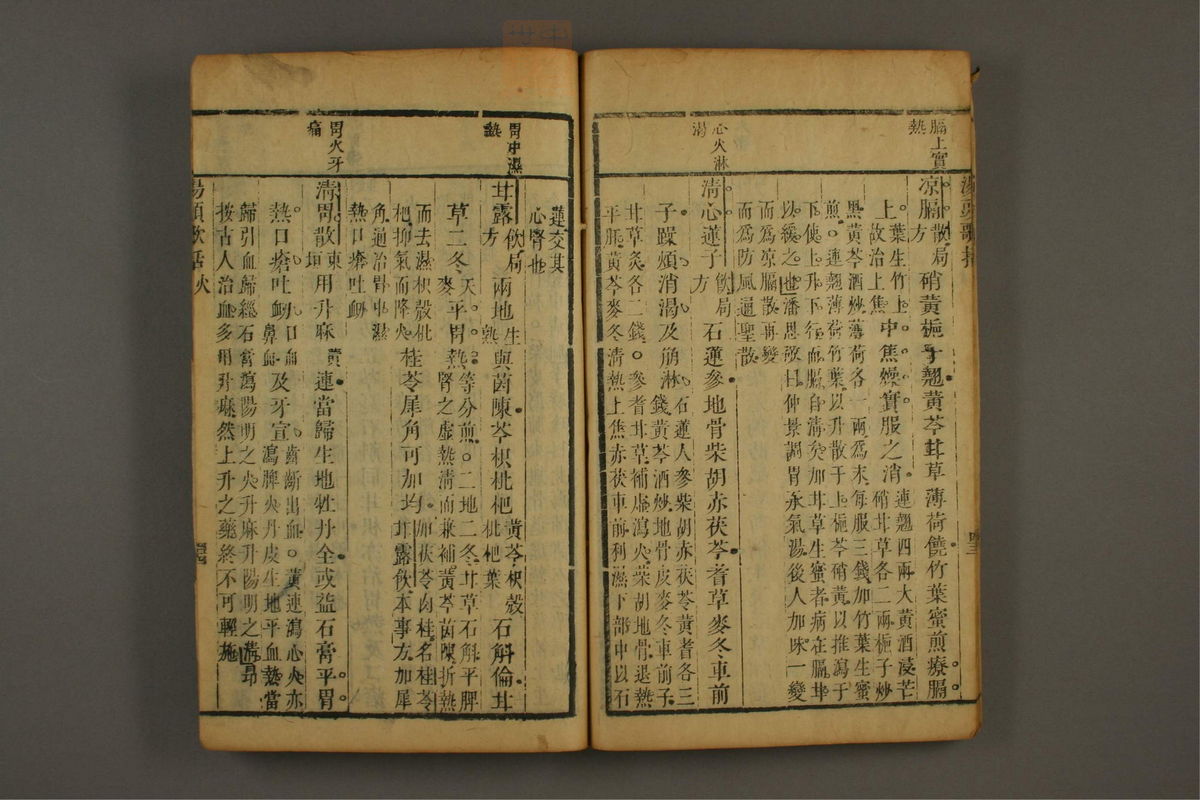 湯頭歌括
膈上實熱
涼膈散局方硝黃梔子翹黃芩甘草薄荷饒竹葉蜜煎療膈
上葉生竹上故治上焦中焦燥實服之消連翹四兩大黃酒浸芒硝甘草各二兩梔子炒
黑黃芩酒炒薄荷各一兩爲末每服三錢加竹葉生蜜
煎○連翹薄荷竹葉以升散于上梔芩硝黃以推瀉于
下使上升下行而膈自清矣加甘草生蜜者病在膈甘
以緩之也潘思敬曰仲景調胃承氣湯後人加味一變
而爲涼膈散再變
而爲防風通聖散
心火淋渴
清心蓮子飲局方石蓮參地骨柴胡赤茯苓耆草麥冬車前
子躁煩消渴及崩淋石蓮人參柴胡赤茯苓黃耆各三錢黃芩酒炒地骨皮麥冬車前子
甘草炙各二錢○參耆甘草補虛瀉火柴胡地骨退熱
平肝黃芩麥冬清熱上焦赤茯車前利濕下部中以石
蓮交其
心腎也
胃中濕熱
甘露飲局方兩地生熟與茵陳芩枳枇杷黃芩枳殼枇杷葉石斛倫甘
草二冬天麥平胃熱等分煎○二地二冬甘草石斛平脾腎之虛熱清而兼補黃芩茵陳折熱
而去濕枳殼枇杷抑氣而降火桂苓犀角可加均加茯苓肉桂名桂苓甘露飲本事方加犀
角通治胃中濕
熱口瘡吐衄
胃火牙痛
清胃散東垣用升麻黃連當歸生地牡丹全或益石膏平胃
熱口瘡吐衄口血鼻血及牙宣齒齗出血○黃連瀉心火亦瀉脾火丹皮生地平血熱當
歸引血歸經石膏瀉陽明之火升麻升陽明之清昂
按古人治血多用升麻然上升之藥終不可輕施
湯頭歌括 火